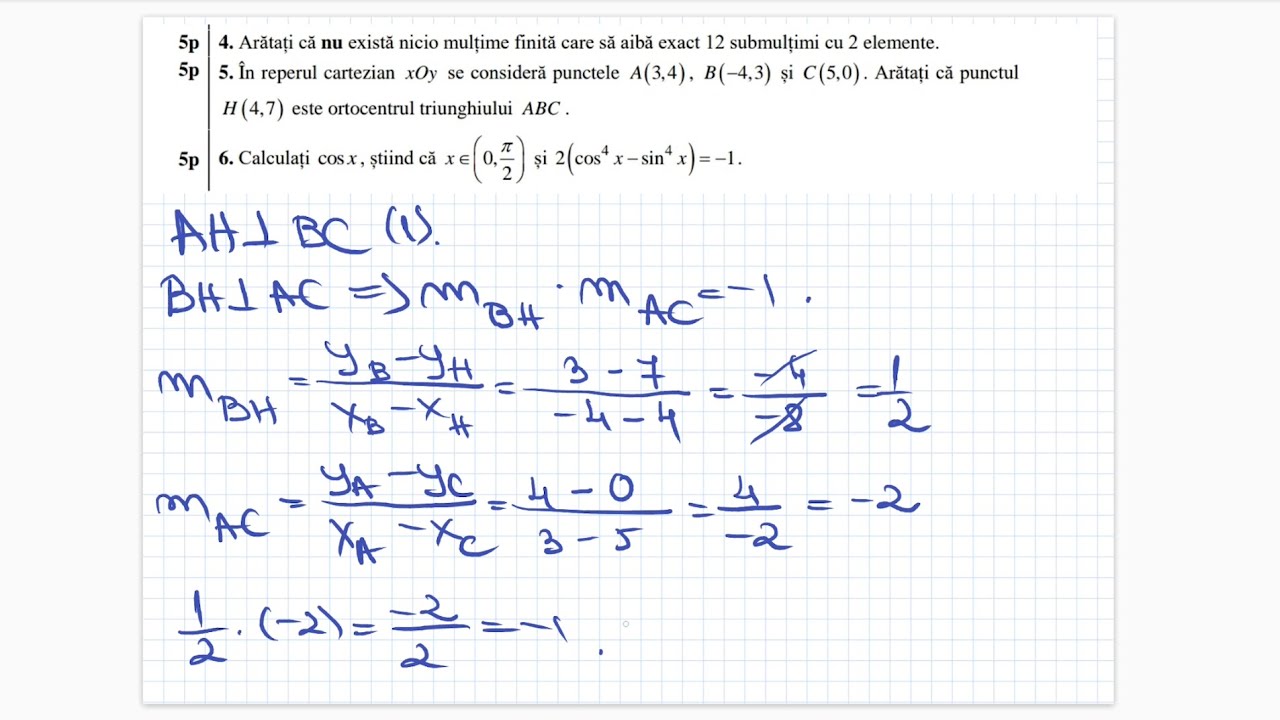 5p 4. Arătați că nu există nicio mulțime finită care să aibă exact 12 submulțimi cu 2 elemente.
5p 5. În reperul cartezian xOy se consideră punctele A(3,4), B(−4,3) și C(5,0). Arătați că punctul
H(4,7) este ortocentrul triunghiului ABC.
5p 6. Calculați cos x, știind că x∈(0, π/2) și 2(cos⁴ x − sin⁴ x) = −1.
AH⊥BC (1).
BH⊥AC => m_BH · m_AC = −1.
m_BH = (y_B − y_H)/(x_B − x_H) = (3 − 7)/(−4 − 4) = −4/−8 = 1/2
m_AC = (y_A − y_C)/(x_A − x_C) = (4 − 0)/(3 − 5) = 4/−2 = −2
1/2 · (−2) = −2/2 = −1.